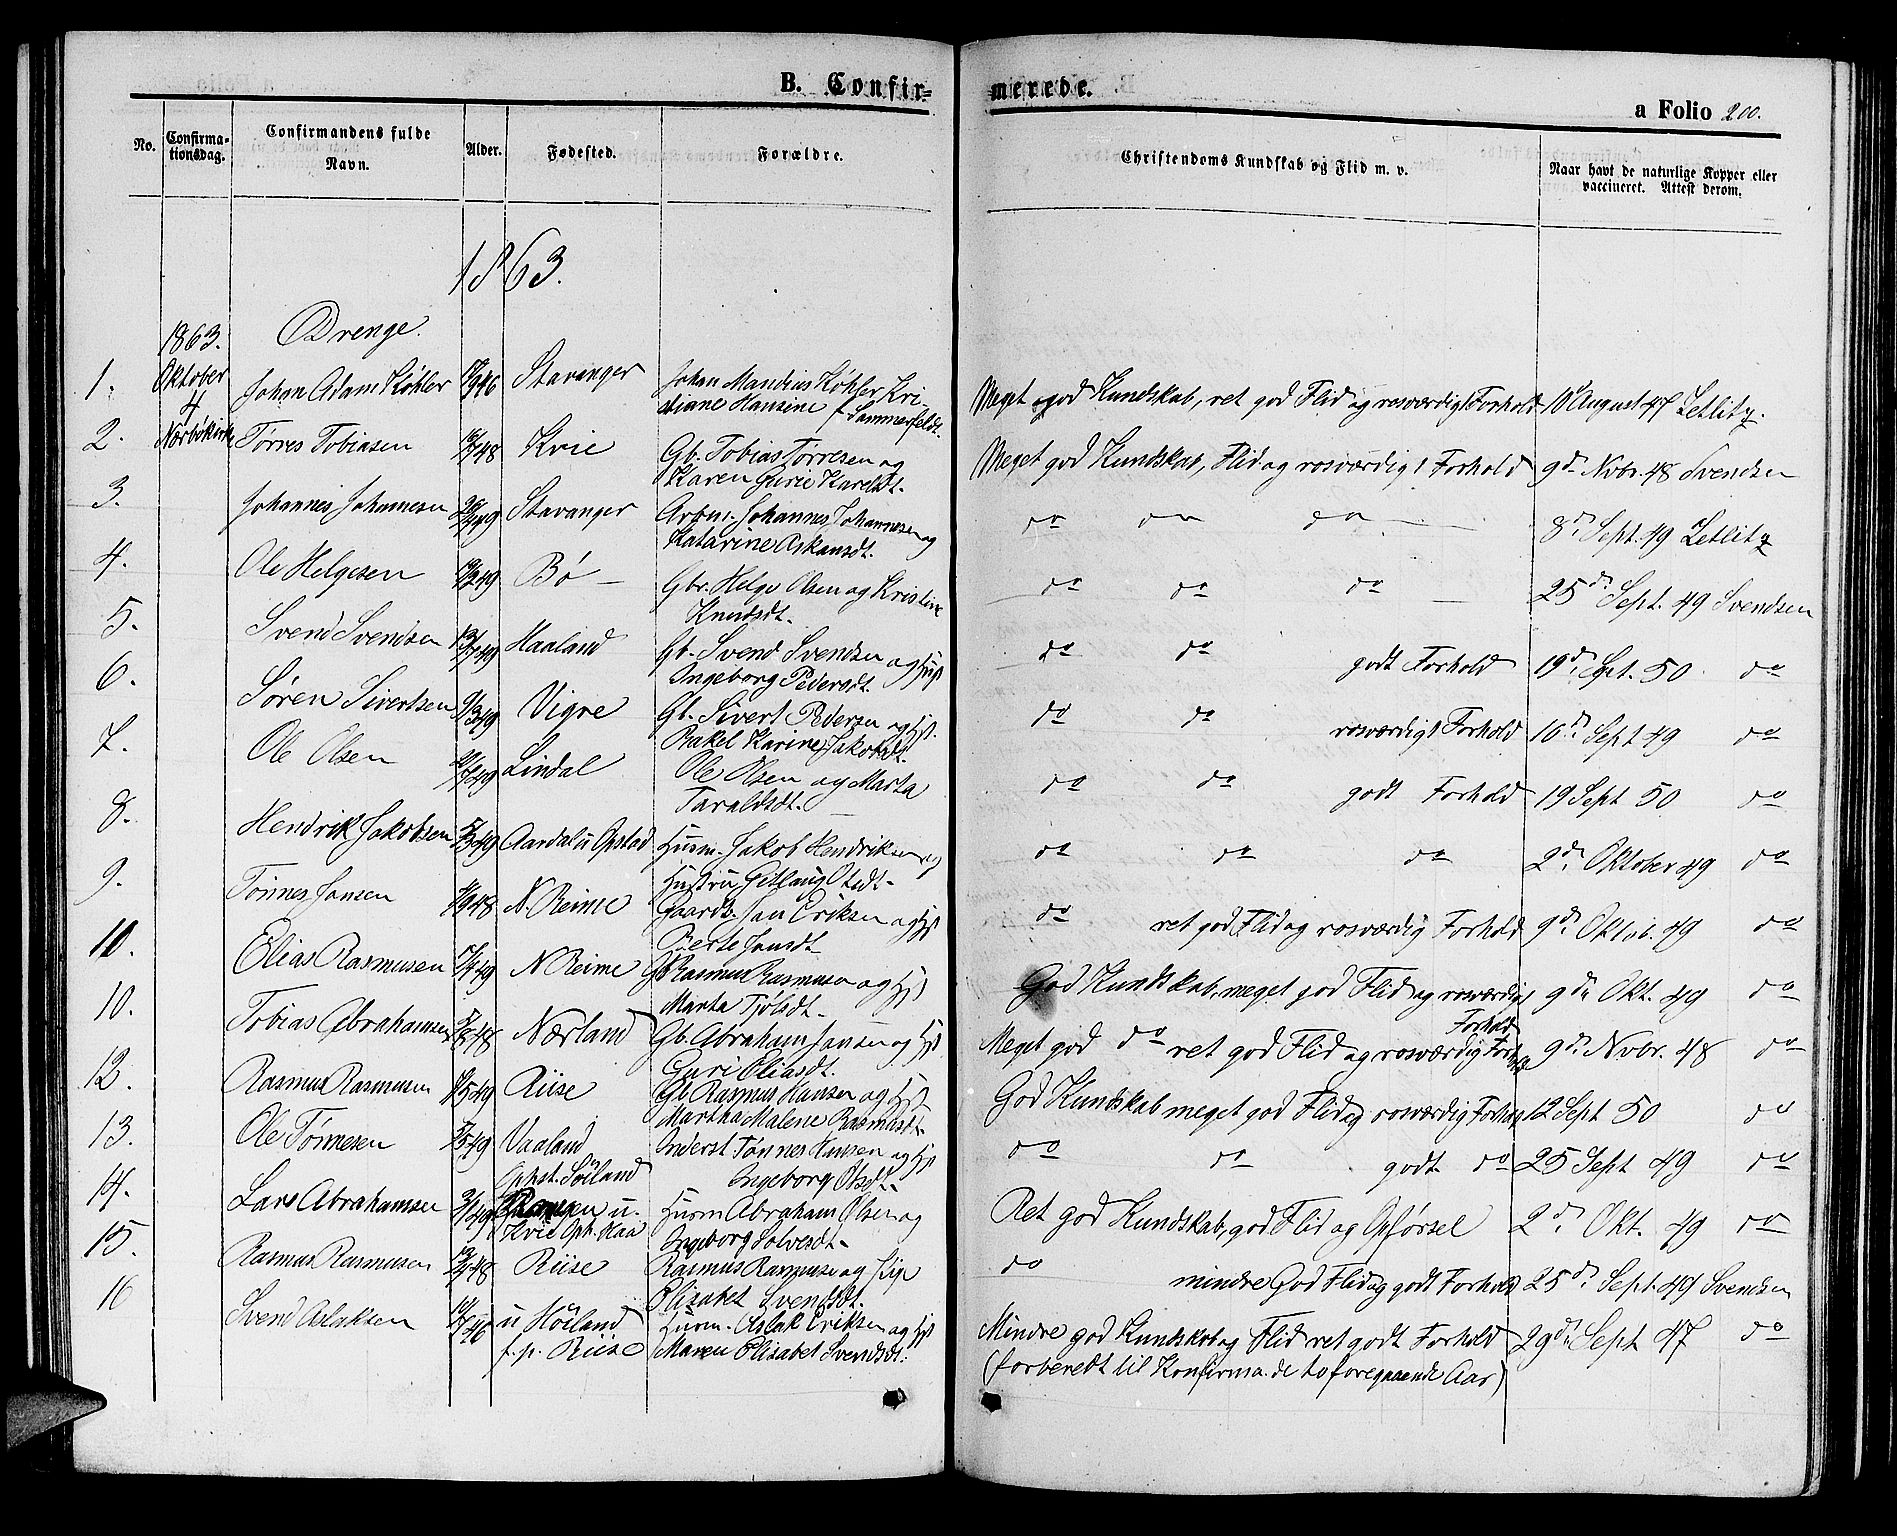 B. Confir=
merede.
a Folio 200.
No.
Confirma-
tionsdag.
Confirmandens fulde
Navn.
Alder.
Fødested.
Forældre.
Christendoms Kundskab og Flid m. v.
Naar havt de naturlige Kopper eller
vaccineret. Attest derom.
1863.
1863. Drenge.
1. Oktober 4 Nærbökirke Johan Adam Köhler Stavanger Johan Mandius Köhler Kri-
stiane Hansine f. Sammerfeldt.
Meget god Kundskab, ret god Flid og rosværdigt Forhold 10d August 47 Zetlitz.
2. Tørres Tobiasen 48 Kvie Gb. Tobias Tørresen og
Karen Gurie Karldt.
Meget god Kundskab, Flid og rosværdigt Forhold 9de Nvbr. 48 Svendsen
3. Johannes Johannesen 49 Stavanger Arbm. Johannes Johannesen og
Katarine Askansdt.
do do do 8d Sept. 49 Zetlitz
4. Ole Helgesen 49 Bö Gbr. Helge Olsen og Kristine
Knudsdt.
do do do 25d Sept. 49 Svendsen
5. Svend Svendsen 49 Haaland Gb. Svend Svendsen og Hust
Ingeborg Pedersdt.
do do godt Forhold 19d Spt. 50 do
6. Søren Sivertsen 49 Vigre Gb. Sivert Pedersen og Hst.
Rakel Karine Jakobsdt
do do rosværdigt Forhold 10d Sept 49 do
7. Ole Olsen 49 Lindal Ole Olsen og Marta
Taraldsdt.
do do godt Forhold 19 Sept 50 do
8. Hendrik Jakobsen 49 Aardal u Opstad Husm. Jakob Hendriksen og
Hustru Gitlaug Olsdt.
do do do 2d Oktober 49 do
9. Tönnes Jansen 48 N. Reime Gaardb. Jan Eriksen og Hst
Berte Jansdt.
do ret god Flid og rosværdig Forhold 9d Oktob. 49 do
10. Elias Rasmusen 49 N Reime Gb Rasmus Rasmusen og Hst
Marta Tjölsdt.
God Kundskab, meget god Flid og rosværdigt
Forhold
9de Okt. 49 do
10. Tobias Abrahamsen 48 Nærland Gb. Abraham Jansen og Hst
Guri Eliasdt.
Meget god do ret god Flid og rosværdig Forhold 9d Nvbr. 48 do
12. Rasmus Rasmusen 49 Riise Gb Rasmus Hansen og Hst
Martha Malene Rasmusdt
God Kundskab meget god Flid og rosværdig Forhold 12 Sept 50 do
13. Ole Tönnesen 49 Vaaland Inderst. Tönnes Hansen og Hst
Ophst. Söiland Ingeborg Olsdt.
do do godt do 25 Sept 49 do
14. Lars Abrahamsen 49 u. Husm Abraham Olsen og
Kvie Oph. Haa Ingeborg Solvesdt.
Ret god Kundskab, god Flid og Opførsel 2d Okt. 49 do
15. Rasmus Rasmusen 48 Riise Rasmus Rasmusen og Hst
Elisabet Svendsdt.
do mindre God Flid og godt Forhold 25d Sept. 49 Svendsen
16 Svend Aslaksen 46 u Höiland Husm. Aslak Eriksen og Hst
f. p. Riise Maren Elisabet Svendsdt.
Mindre god Kundskab og Flid ret godt Forhold 29de Sept 47 do
(forberedt til Konfirma. de to foregaaende Aar)